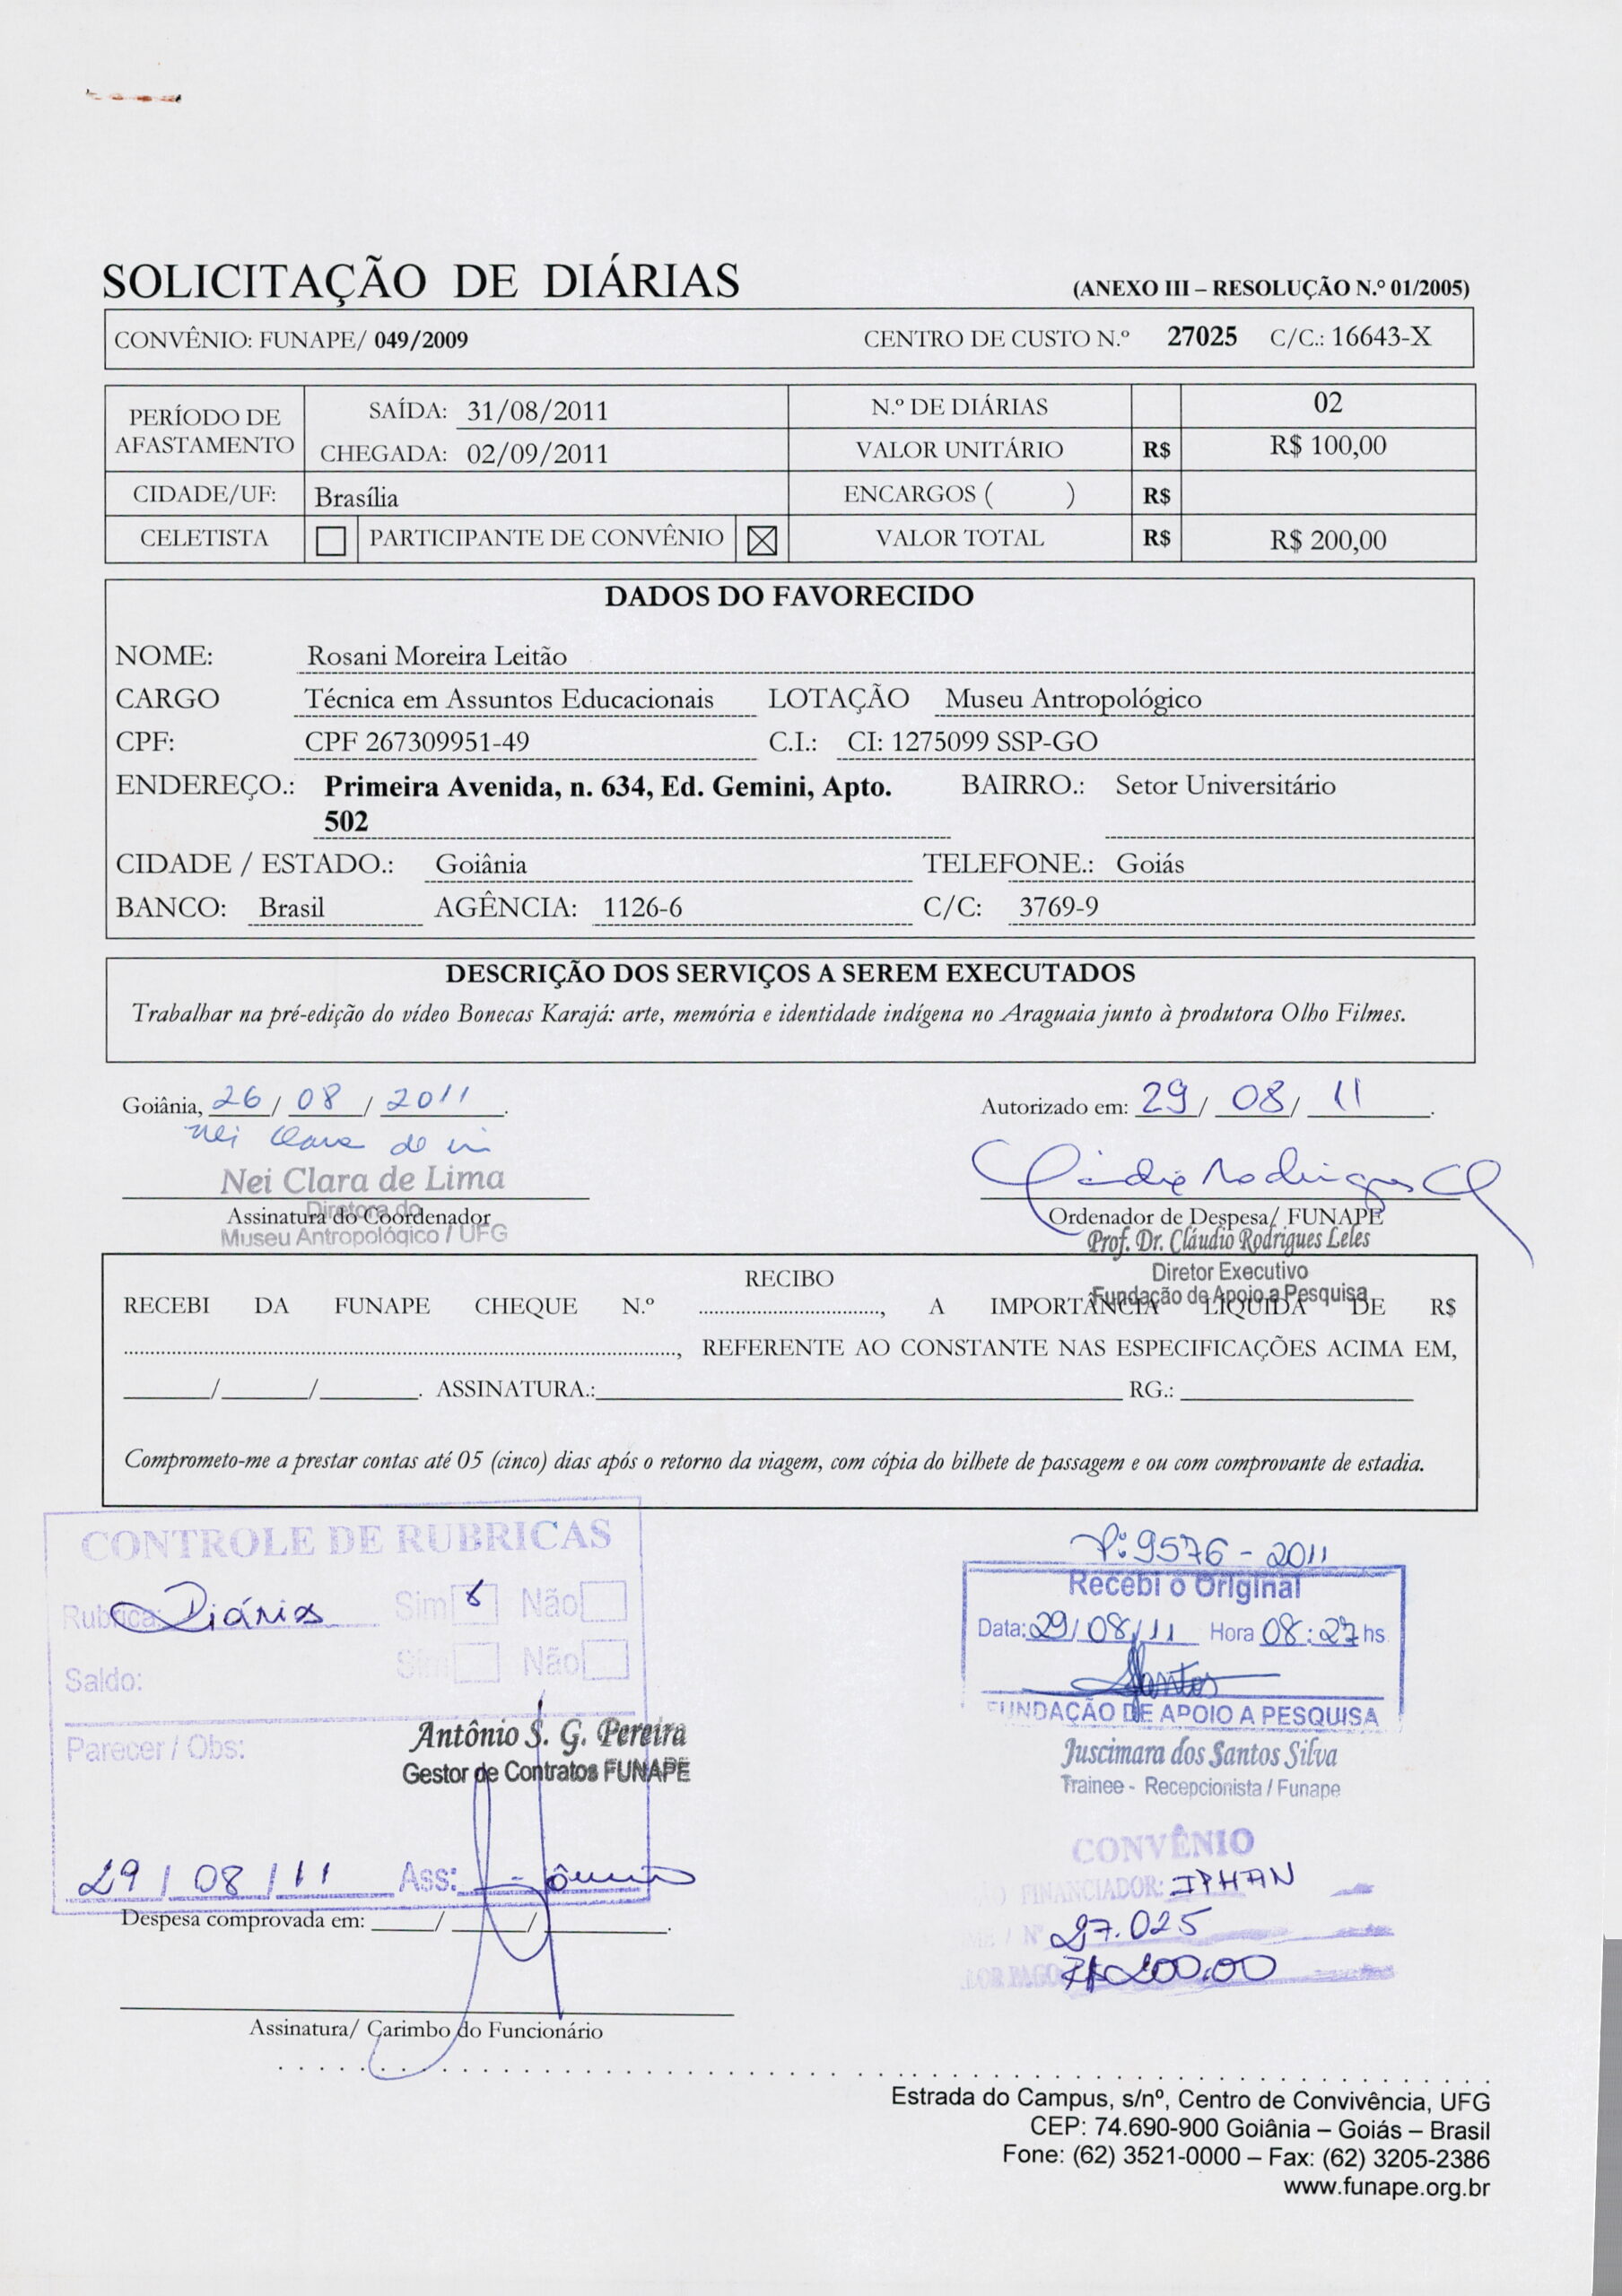 SOLICITAÇÃO DE DIÁRIAS (ANEXO III – RESOLUÇÃO N.º 01/2005)
CONVÊNIO: FUNAPE/ 049/2009 CENTRO DE CUSTO N.º 27025 C/C.: 16643-X
PERÍODO DE AFASTAMENTO SAÍDA: 31/08/2011 N.º DE DIÁRIAS 02
CHEGADA: 02/09/2011 VALOR UNITÁRIO R$ R$ 100,00
CIDADE/UF: Brasília ENCARGOS ( ) R$
CELETISTA PARTICIPANTE DE CONVÊNIO VALOR TOTAL R$ R$ 200,00
DADOS DO FAVORECIDO
NOME: Rosani Moreira Leitão
CARGO Técnica em Assuntos Educacionais LOTAÇÃO Museu Antropológico
CPF: CPF 267309951-49 C.I.: CI: 1275099 SSP-GO
ENDEREÇO.: Primeira Avenida, n. 634, Ed. Gemini, Apto. BAIRRO.: Setor Universitário
502
CIDADE / ESTADO.: Goiânia TELEFONE.: Goiás
BANCO: Brasil AGÊNCIA: 1126-6 C/C: 3769-9
DESCRIÇÃO DOS SERVIÇOS A SEREM EXECUTADOS
Trabalhar na pré-edição do vídeo Bonecas Karajá: arte, memória e identidade indígena no Araguaia junto à produtora Olho Filmes.
Goiânia, 26 / 08 / 2011 . Autorizado em: 29 / 08 / 11 .
Nei Clara de
Nei Clara de Lima
Assinatura do Coordenador
Diretora do
Museu Antropológico / UFG
Cláudio Rodrigues
Ordenador de Despesa/ FUNAPE
Prof. Dr. Cláudio Rodrigues Leles
Diretor Executivo
Fundação de Apoio a Pesquisa
RECIBO
RECEBI DA FUNAPE CHEQUE N.º ............................., A IMPORTÂNCIA LÍQUIDA DE R$
......................................................................................., REFERENTE AO CONSTANTE NAS ESPECIFICAÇÕES ACIMA EM,
______/______/_______. ASSINATURA.:____________________ RG.: ____________________
Comprometo-me a prestar contas até 05 (cinco) dias após o retorno da viagem, com cópia do bilhete de passagem e ou com comprovante de estadia.
CONTROLE DE RUBRICAS
Rubrica: Diárias Sim Não
Saldo: Sim Não
Parecer / Obs:
Antônio S. G. Pereira
Gestor de Contratos FUNAPE
29 / 08 / 11 Ass:
Despesa comprovada em: _____/ ______/ __________.
Assinatura/ Carimbo do Funcionário
P: 9576 - 2011
Recebi o Original
Data: 29/08/11 Hora 08:27 hs
Santos
FUNDAÇÃO DE APOIO A PESQUISA
Juscimara dos Santos Silva
Trainee - Recepcionista / Funape
CONVÊNIO
FINANCIADOR: IPHAN
Nº 27.025
PAGO R$ 200,00
Estrada do Campus, s/nº, Centro de Convivência, UFG
CEP: 74.690-900 Goiânia – Goiás – Brasil
Fone: (62) 3521-0000 – Fax: (62) 3205-2386
www.funape.org.br